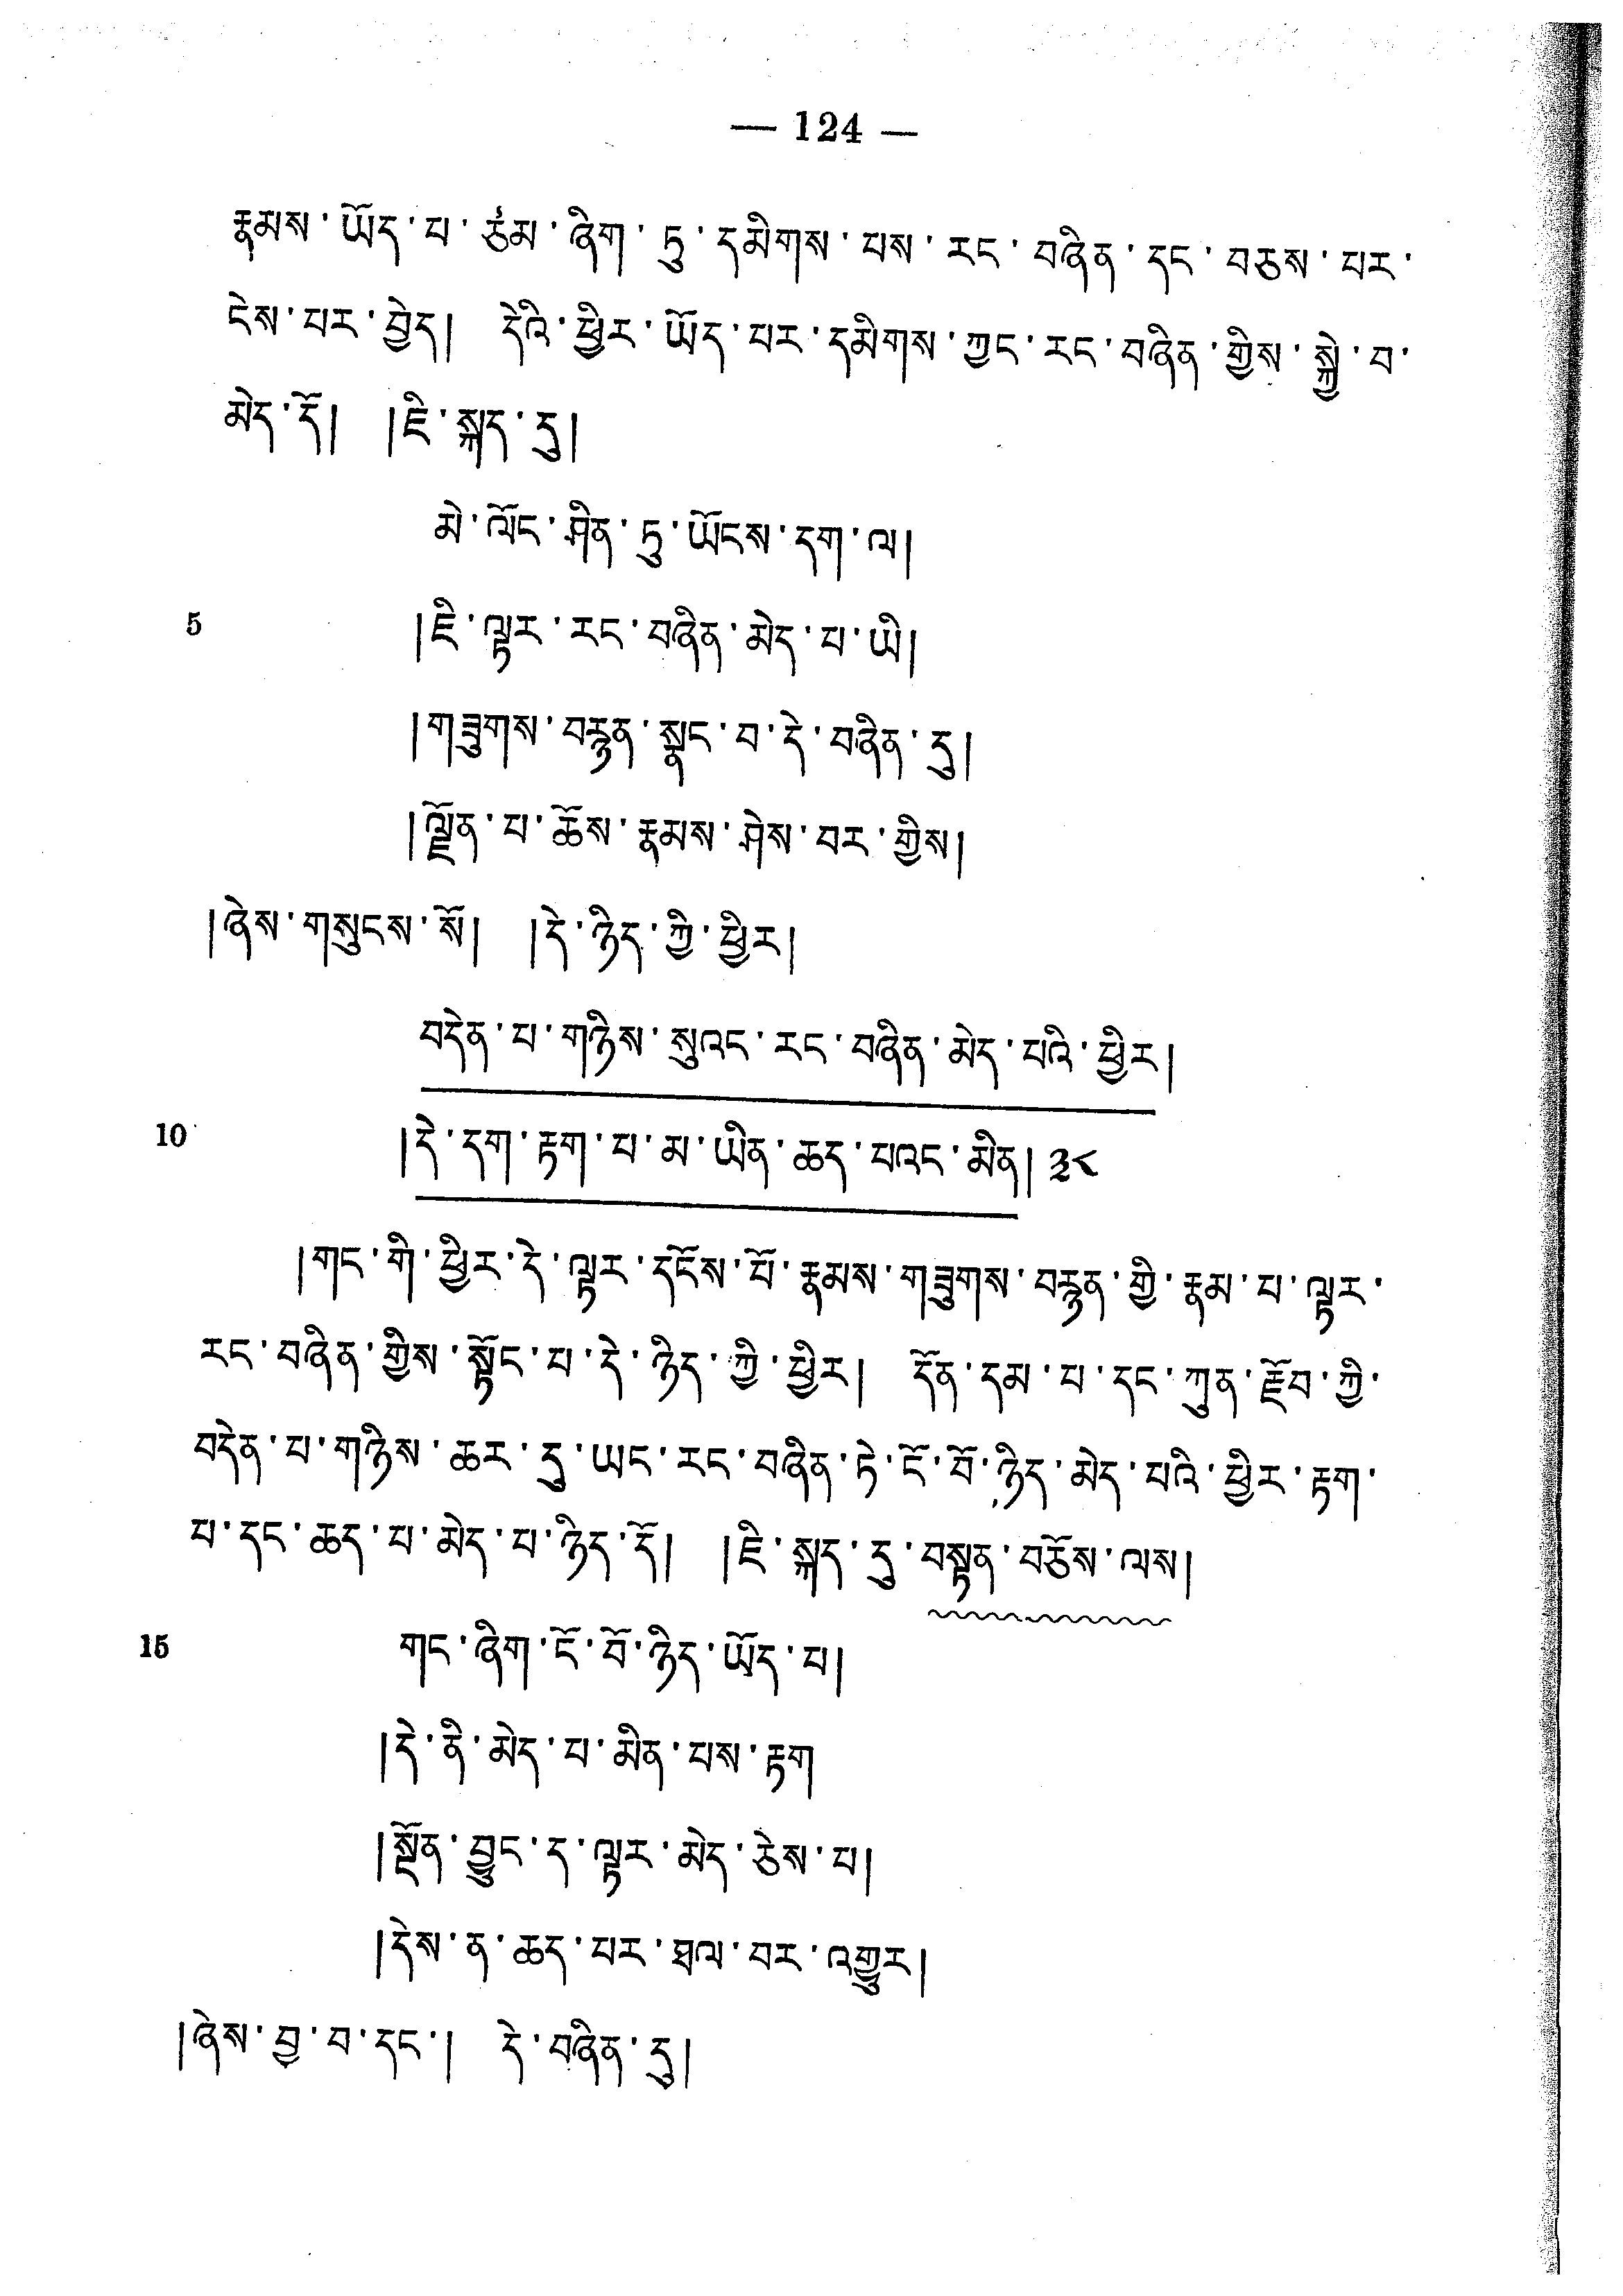 — 124 —
རྣམས་ཡོད་པ་ཙམ་ཞིག་ཏུ་དམིགས་པས་རང་བཞིན་དང་བཅས་པར་
ངེས་པར་བྱེད། དེའི་ཕྱིར་ཡོད་པར་དམིགས་ཀྱང་རང་བཞིན་གྱིས་སྐྱེ་བ་
མེད་དོ། །ཇི་སྐད་དུ།
མེ་ལོང་ཤིན་ཏུ་ཡོངས་དག་ལ།
5 །ཇི་ལྟར་རང་བཞིན་མེད་པ་ཡི།
།གཟུགས་བརྙན་སྣང་བ་དེ་བཞིན་དུ།
།ལྗོན་པ་ཆོས་རྣམས་ཤེས་བར་གྱིས།
།ཞེས་གསུངས་སོ། །དེ་ཉིད་ཀྱི་ཕྱིར།
བདེན་པ་གཉིས་སུའང་རང་བཞིན་མེད་པའི་ཕྱིར།
10 །དེ་དག་རྟག་པ་མ་ཡིན་ཆད་པའང་མིན། ༣༨
།གང་གི་ཕྱིར་དེ་ལྟར་དངོས་པོ་རྣམས་གཟུགས་བརྙན་གྱི་རྣམ་པ་ལྟར་
རང་བཞིན་གྱིས་སྟོང་པ་དེ་ཉིད་ཀྱི་ཕྱིར། དོན་དམ་པ་དང་ཀུན་རྫོབ་ཀྱི་
བདེན་པ་གཉིས་ཆར་དུ་ཡང་རང་བཞིན་ཏེ་ངོ་བོ་ཉིད་མེད་པའི་ཕྱིར་རྟག་
པ་དང་ཆད་པ་མེད་པ་ཉིད་དོ། །ཇི་སྐད་དུ་བསྟན་བཅོས་ལས།
15 གང་ཞིག་ངོ་བོ་ཉིད་ཡོད་པ།
།དེ་ནི་མེད་པ་མིན་པས་རྟག
།སྔོན་བྱུང་ད་ལྟར་མེད་ཅེས་པ།
།དེས་ན་ཆད་པར་ཐལ་བར་འགྱུར།
།ཞེས་བྱ་བ་དང་། དེ་བཞིན་དུ།